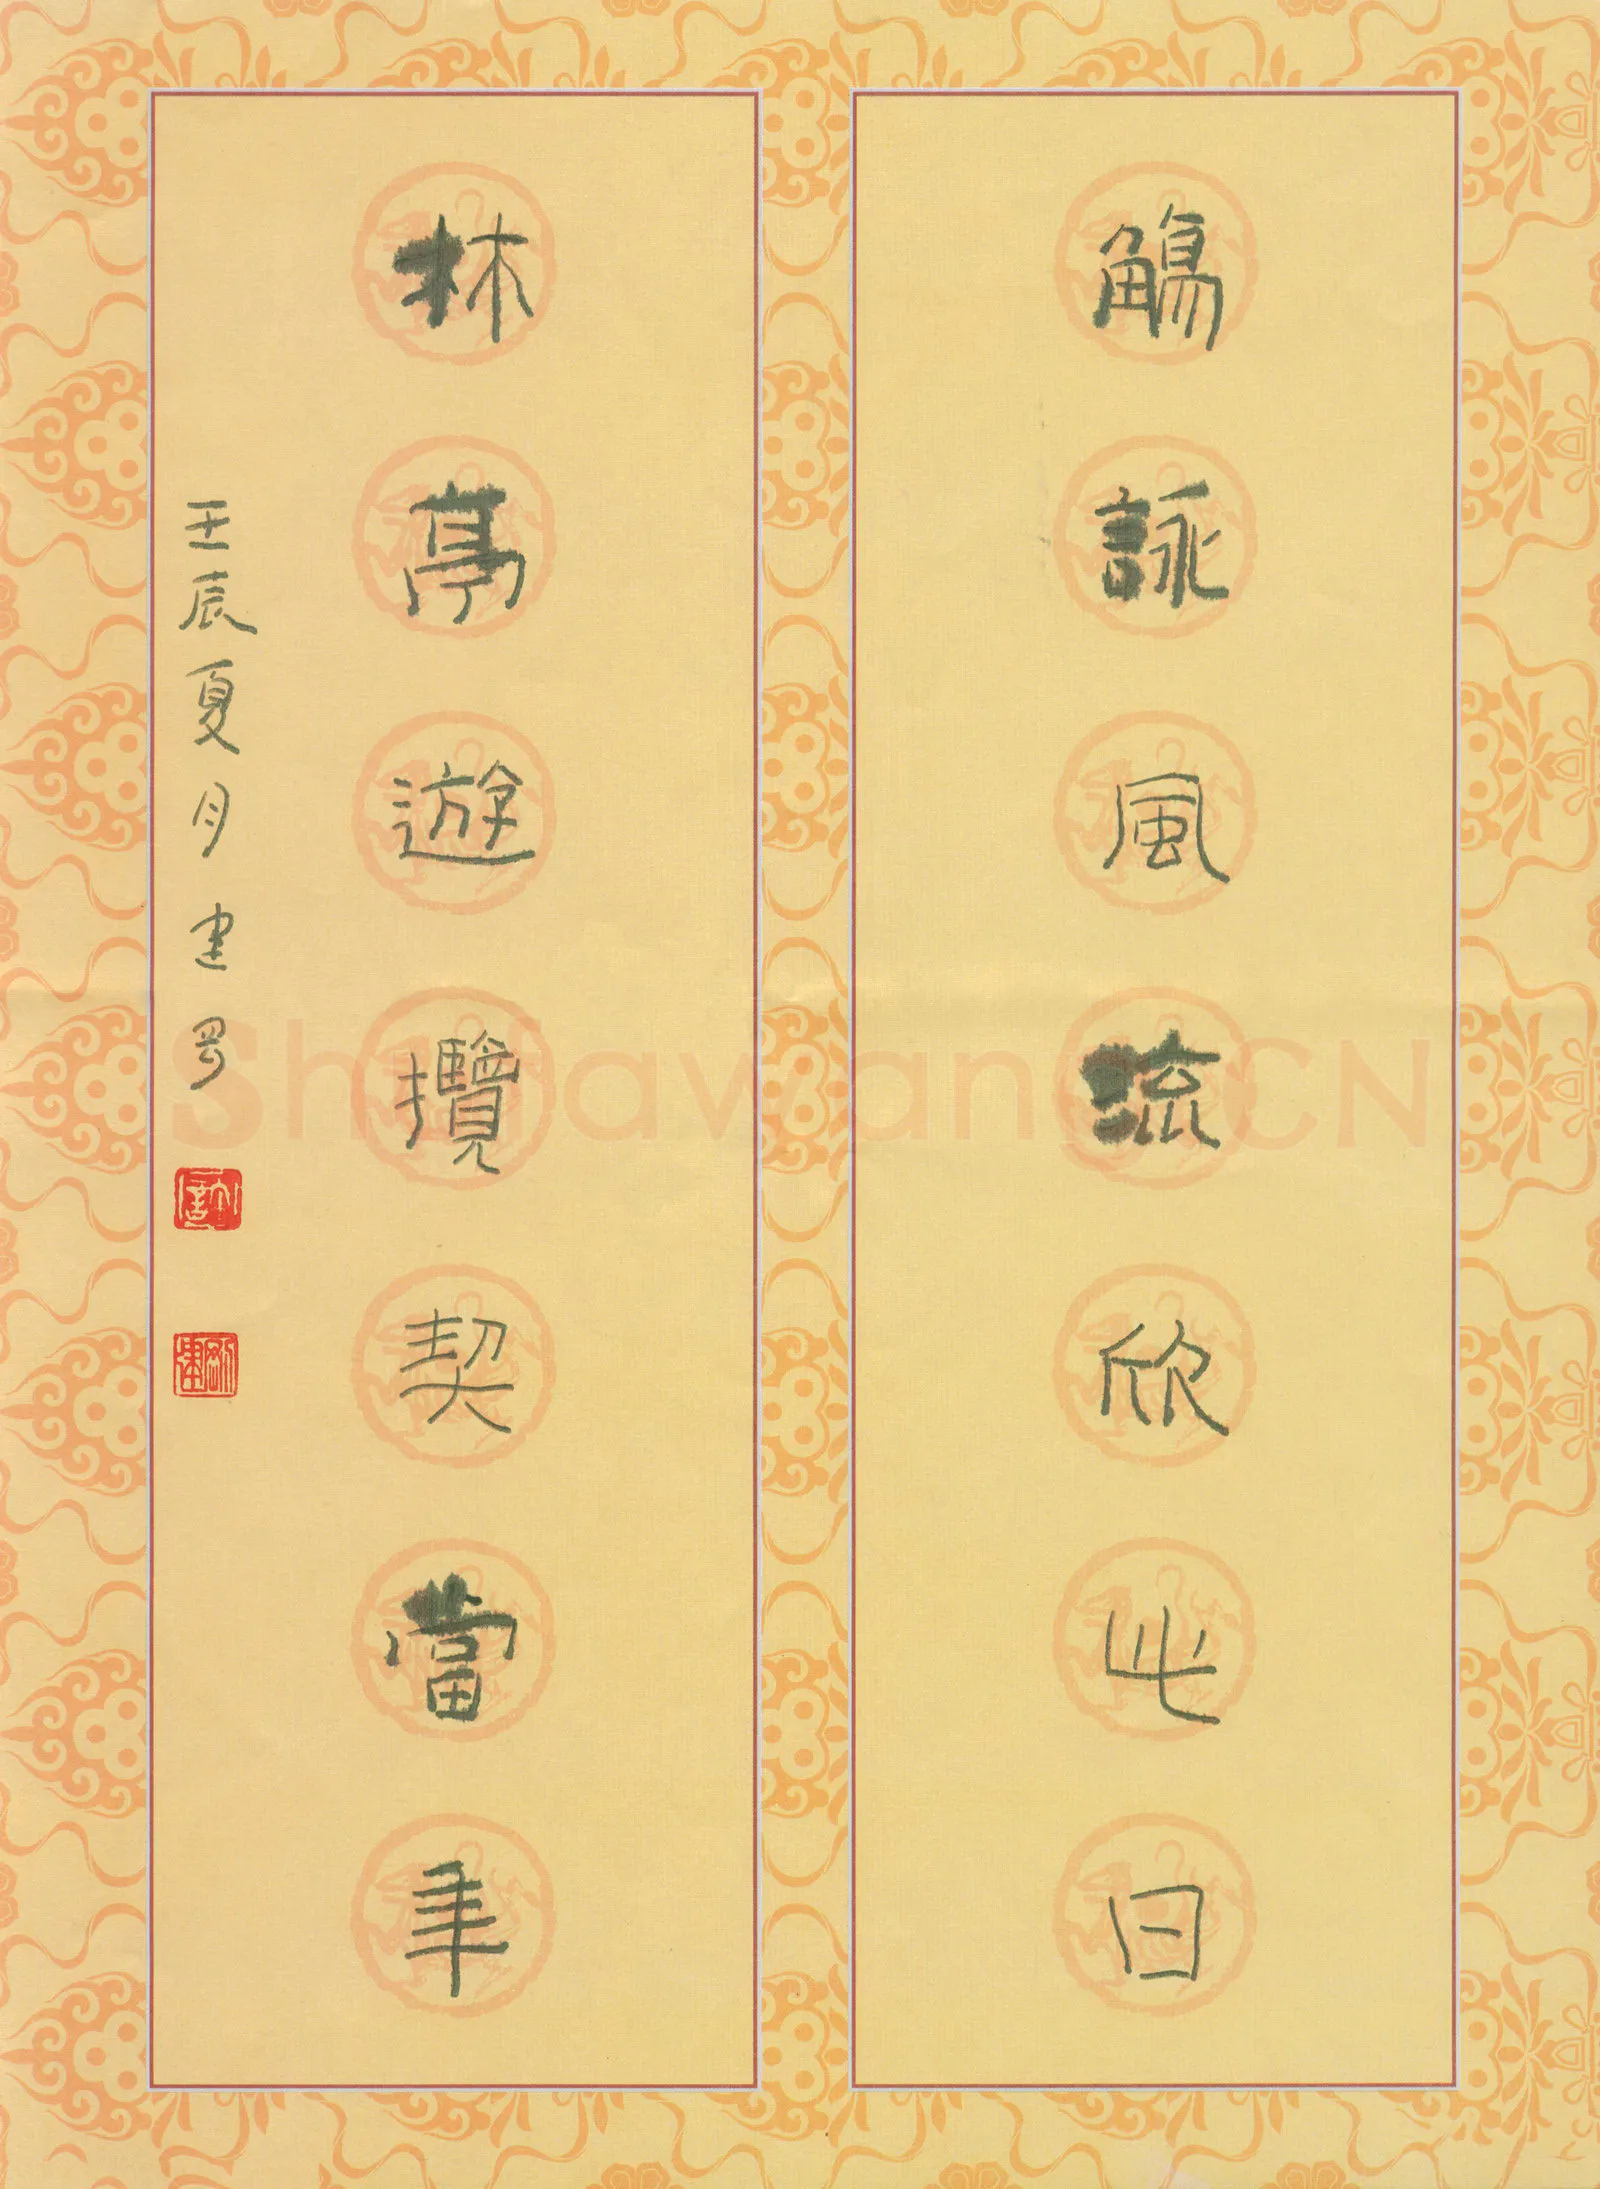 觴詠風流欣此日
林亭遊攬契當年
壬辰夏月建
Shufawang.CN